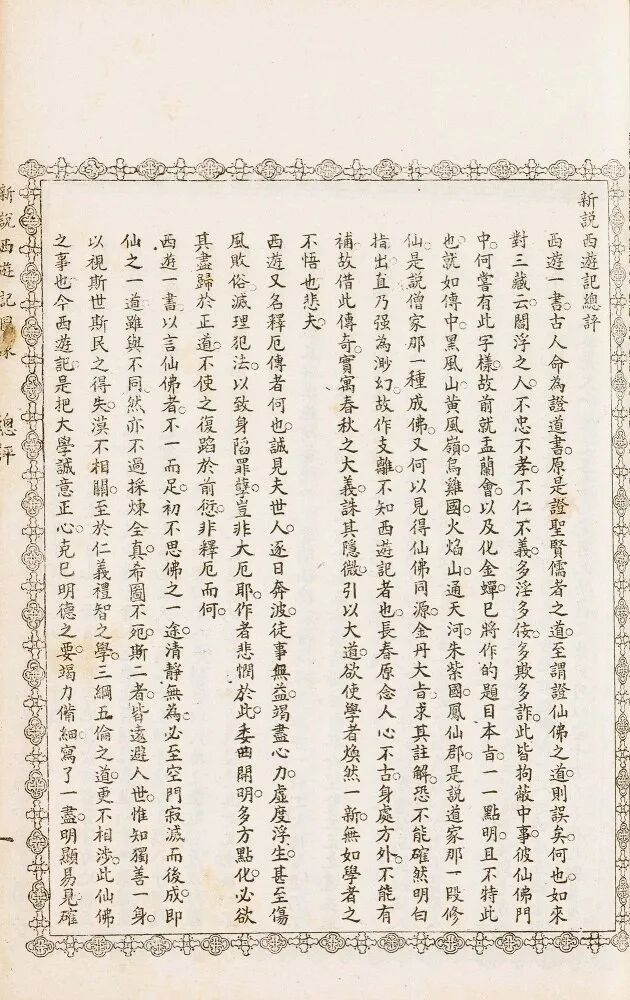 新説西遊記總評
西遊一書古人命為證道書原是證聖賢儒者之道至謂證仙佛之道則誤矣何也如來
對三藏云閻浮之人不忠不孝不仁不義多淫多佞多欺多詐此皆拘蔽中事彼仙佛門
中何嘗有此字樣故前就盂蘭會以及化金蟬已將作的題目本㫖一一點明且不特此
也就如傳中黑風山黄風嶺烏雞國火焰山通天河朱紫國鳳仙郡是説道家那一段修
仙是説僧家那一種成佛又何以見得仙佛同源金丹大㫖求其註解恐不能確然明白
指出直乃强為渺幻故作支離不知西遊記者也長春原念人心不古身處方外不能有
補故借此傳奇實寓春秋之大義誅其隱微引以大道欲使學者煥然一新無如學者之
不悟也悲夫
西遊又名釋厄傳者何也誠見夫世人逐日奔波徒事無益竭盡心力虚度浮生甚至傷
風敗俗滅理犯法以致身陷罪孽豈非大厄耶作者悲憫於此委曲開明多方點化必欲
其盡歸於正道不使之復蹈於前愆非釋厄而何
西遊一書以言仙佛者不一而足初不思佛之一途清静無為必至空門寂滅而後成即
仙之一道雖與不同然亦不過採煉全真希圖不死斯二者皆遠避人世惟知獨善一身
以視斯世斯民之得失漠不相關至於仁義禮智之學三綱五倫之道更不相涉此仙佛
之事也今西遊記是把大學誠意正心克已明德之要竭力俻細寫了一盡明顯易見確
新説西遊記圖像
總評
一